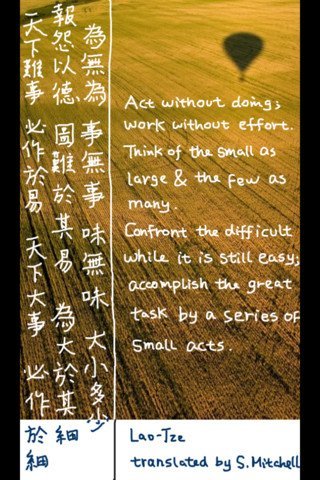 為無為 事無事 味無味 大小多少
報怨以德 圖難於其易 為大於其細
天下難事 必作於易 天下大事 必作於細
Act without doing;
work without effort.
Think of the small as
large & the few as
many.
Confront the difficult
while it is still easy;
accomplish the great
task by a series of
small acts.
Lao-Tze
translated by S. Mitchell